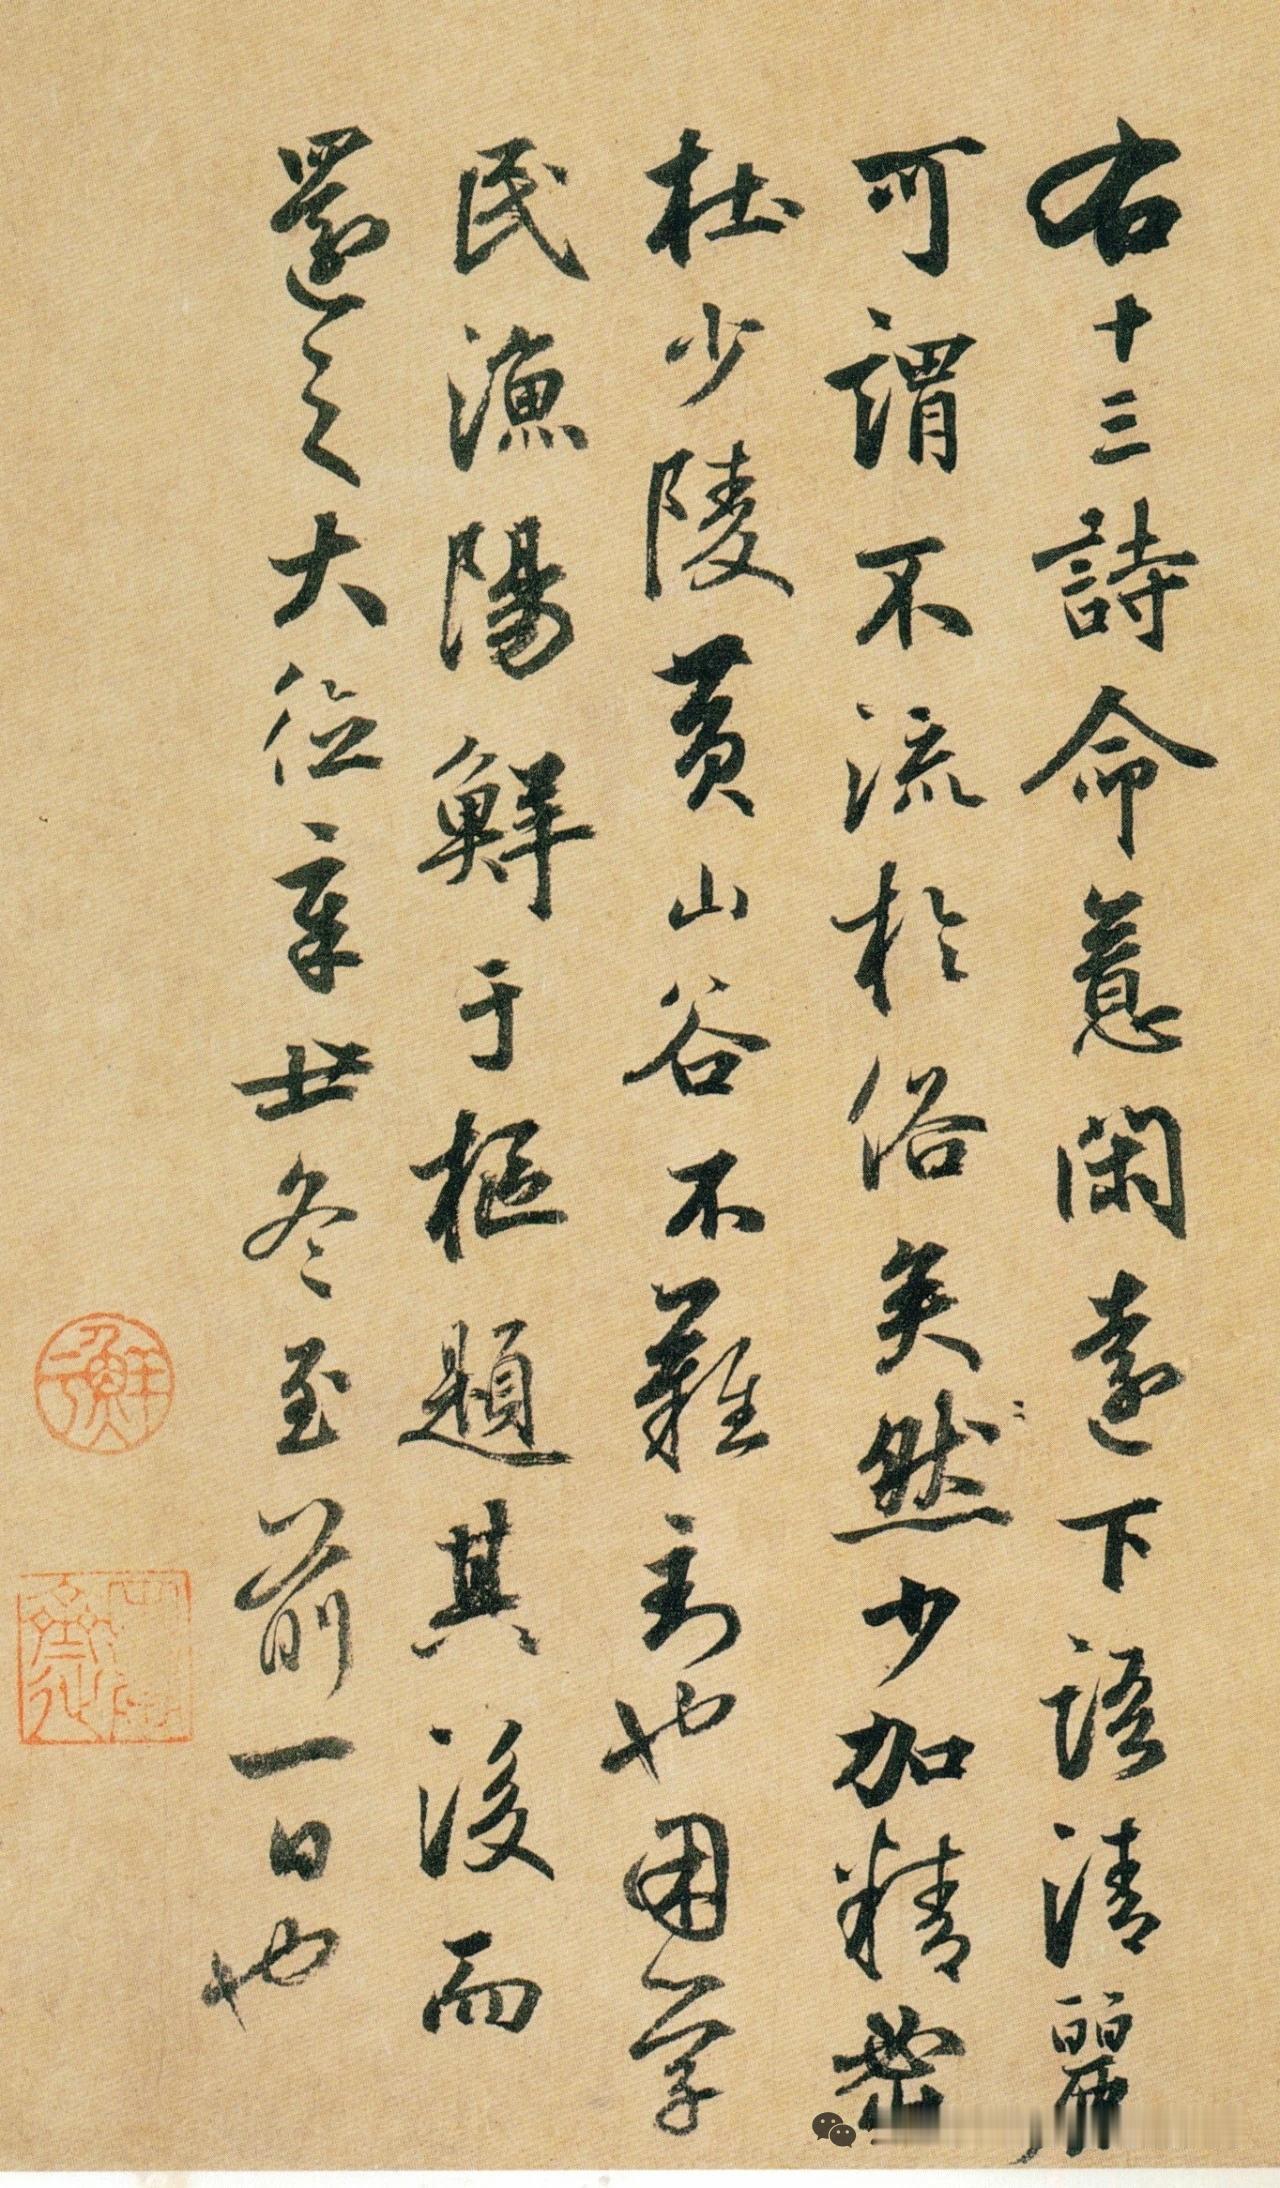 右十三詩命意閑遠下語清麗
可謂不流於俗矣然少加精密
杜少陵黄山谷不難到也困學
民漁陽鮮于樞題其後而
還之大德辛丑冬至前一日也
鮮于